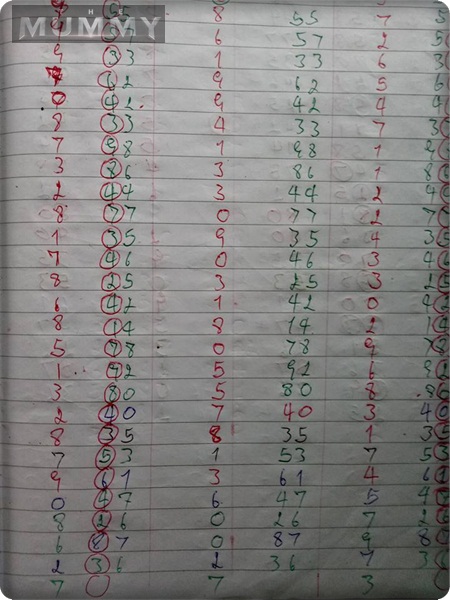 THE
MUMMY
8 55 7 5
6 57 2 5
9 33 1 33 6 3
62 9 62 5 6
0 42. 9 42 4 4
8 33 4 33 7 3
7 98 1 98 1 9
3 86 3 86 1 8
2 44 3 44 2 4
8 77 0 77 2 7
1 35 9 35 4 35
7 46 0 46 3 46
8 25 3 25 3 25
6 42 1 42 0 42
8 14 8 14 2 14
5 78 0 78 9 78
1.. 92 5 92 6 92
3 80 5 80 8 80
2 40 7 40 3 40
8 35 8 35 1 35
7 53 1 53 7 53
9 61 3 61 4 61
0 47 6 47 5 4
8 26 0 26 7 26
6 87 0 87 9 8
2 36 2 36 7 3
7 7 3